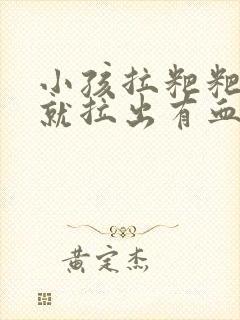 小孩拉粑粑
就拉出有血
黄定杰